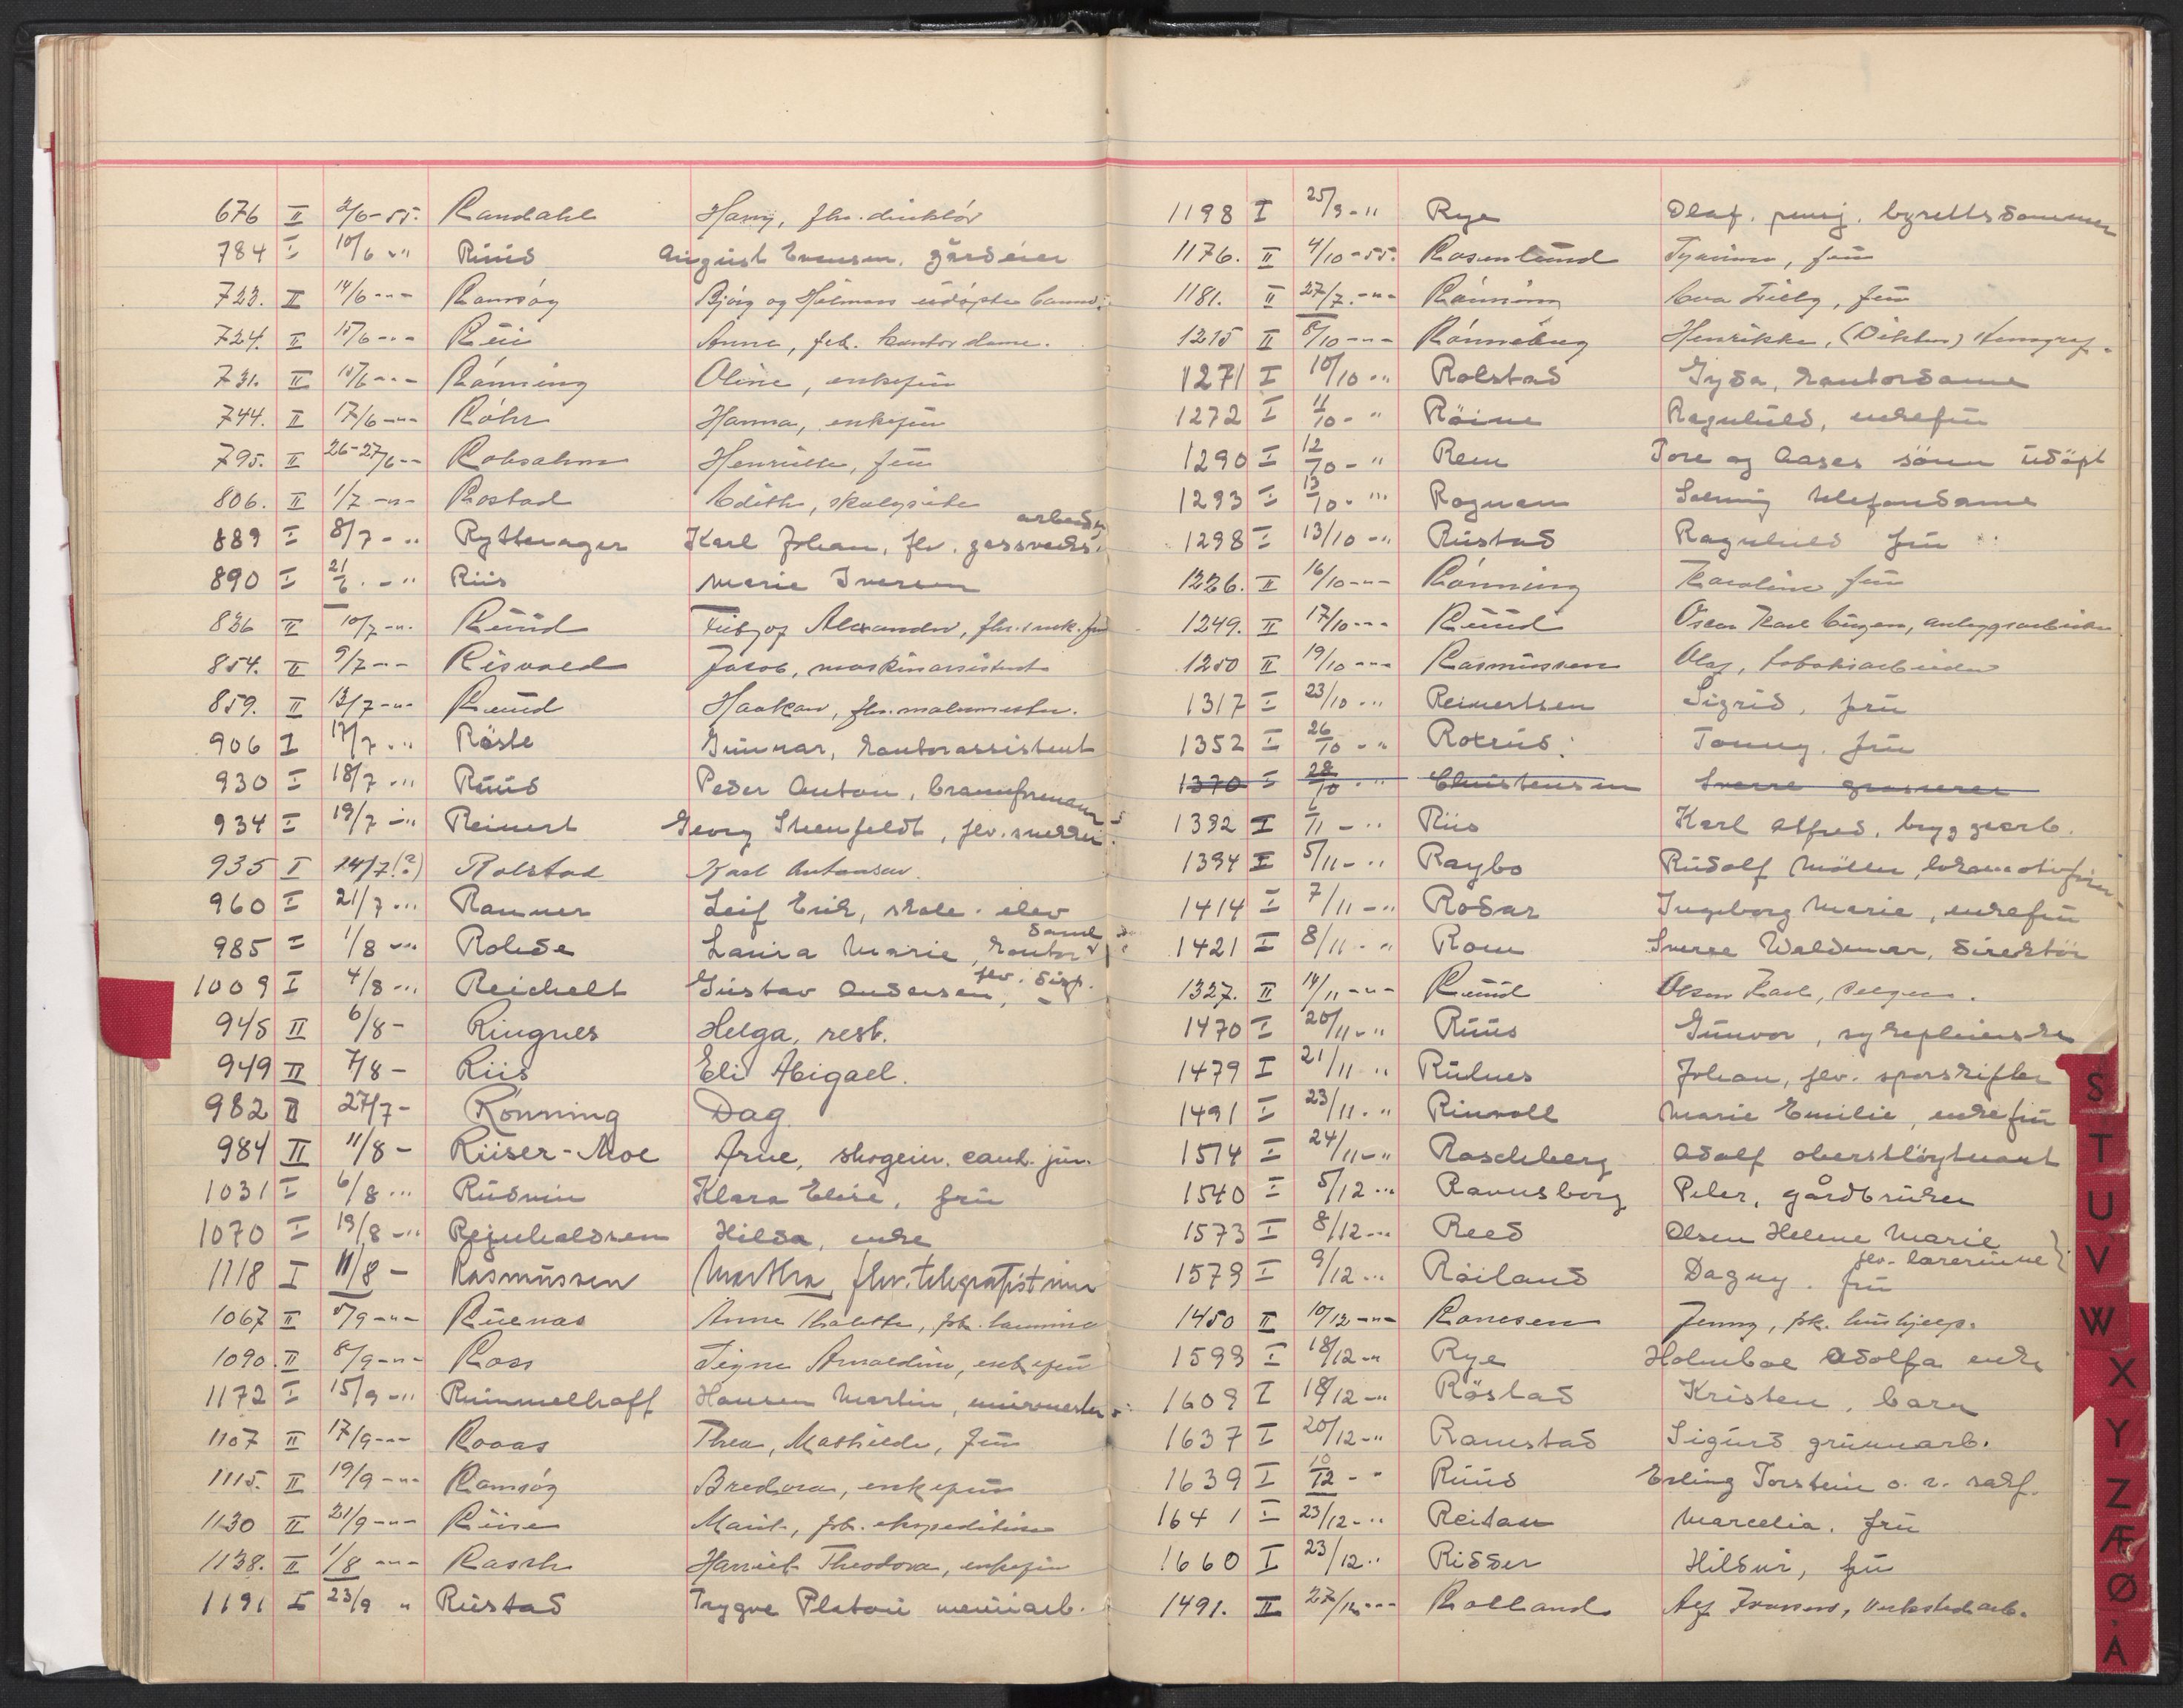 676 II 2/6-55. Randahl Harry, fhv. direktör
784 I 10/6 -" Ruud August Evensen, gårdeier
723. II 14/6 -"- Ramsøy Bjørg og Hilmars udöpte barn.
724. II 15/6 -"- Rui Anna, fhv. kontordame.
731. II 15/6 -"- Rønning Oline, enkefru
744. II 17/6 -"- Röhr Hanna, enkefru
795. II 26-27/6 -- Robsahm Henriette, fru
806. II 1/7 -"- Rostad Edith,
arbeider
889 I 8/7 - " Rytterager Karl Johan, fhv. gassverks
890 I 21/6 - " Riis Marie Iversen
836 II 10/7 -"- Ruud Alexander,
854. II 9/7 -- Risvold Jacob, maskinassistent
859. II 13/7 -"- Ruud Haakon, fhv. malermester.
906 I 17/7 -" Röste Gunnar, kontorassistent
930 I 18/7 -" Ruud Peder Anton, brannformann
934 I 19/7 -" Reinert Georg Steenfeldt, fhv. snekker
935 I 14/7(?) Rolstad Karl Antonsen.
960 I 21/7 -" Ranner Leif Erik, skole-elev
985 I 1/8 -" Rohde Laura Marie, kontor dame
1009 I 4/8 -" Reichelt Gustav Andersen, fhv. disp.
945 II 6/8 - Ringnes Helga, rest.
949 II 7/8 - Riis Eli Abigael.
982 II 27/7 - Rønning Dag
984 II 11/8 - Riiser-Moe Arne, skogeier. cand. jur.
1031 I 6/8 -" Rudwin Klara Elise, fru
1070 I 19/8 -" Rejnholdsen Hilda, enke
1118 I 11/8 - Rasmussen Martha fhv. telegrafistinne
1067 II 5/9 -"- Ruenas Anne
1090. II 8/9 -"- Ross Signe Arnoldine, enkefru
1172 I 15/9 -" Rummelhoff Hansen Martin, murmester
1107 II 17/9 -"- Rooas Thea, Mathilde, fru
1115. II 19/9 -"- Ramsøy Bredora, enkefru
1130 II 21/9 -"- Riise Marit, fhv. ekspeditrise
1138. II 1/8 -"- Rasch Harriet Theodora, enkefru
1191 I 23/9 " Rustad Trygve Platou murerarb.
1198 I 25/9 - " Rye Olaf. pensj. byrettsdommer
1176. II 4/10 - 55. Rosenlund fru
1181. II 27/7. -"- Rønning Eva fru
1215 II 8/10 -"- Rønneberg Henrikke, (Dikken)
1271 I 10/10 -" Rolstad Gyda, kontordame
1272 I 11/10 - " Röine Ragnhild, enkefru
1290 I 12/10 - " Rem Tore og Aases sönn udöpt
1293 I 13/10 - " Rognan Solveig telefondame
1298 I 13/10 -" Rustad Ragnhild fru
1226. II 16/10 -"- Rønning Karoline fru
1249. II 17/10 -"- Ruud Oscar Karl Birger, anleggsarbeider
1250 II 19/10 -"- Rasmussen Olaf, tobakksarbeider
1317 I 23/10 -" Reinertsen Sigrid, fru
1352 I 26/10 -" Rotrud. Tonny. fru
1370 I 28/10 -" Christensen Sverre grosserer
1392 I 1/11 - " Riis Karl Alfred, bryggearb.
1394 I 5/11 - " Raybo Rudolf Möller, lokomotivfører
1414 I 7/11 -" Rodar Ingeborg Marie, enkefru
1421 I 8/11 - " Rom Sverre Waldemar, direktör
1327. II 14/11 -"- Ruud Oscar Karl, Birger.
1470 I 20/11 -" Ruus Gunvor, sykepleierske
1479 I 21/11 " Rudnes Johan, fhv. sporskifter
1491 I 23/11 - " Rinvoll Marie Emilie, enkefru
1514 I 24/11 -" Raschberg Adolf oberstlöytnant
1540 I 5/12 -" Ravnsborg Peter, gårdbruker
1573 I 8/12 -" Reed Olsen Helene Marie
fhv. lærerinne
1579 I 9/12 -" Röiland Dagny. fru
1450 II 10/12 -"- Ronesen Jenny, fhv. hushjelp.
1599 I 18/12 -" Rye Holmboe Adolfa enke
1609 I 18/12 -" Röstad Kristen, barn
1637 I 20/12 -" Ramstad Sigurd grunnarb.
1639 I 10/12 - " Ruud Erling Torstein o. r. sakf.
1641 I 23/12 -" Reitan Marcelia. fru
1660 I 23/12 " Ridder Hildur, fru
1491. II 27/12 -"- Rolland Alf Ivarsen, verkstedarb.
S
T
U
V
W
X
Y
Z
Æ
Ø
Å